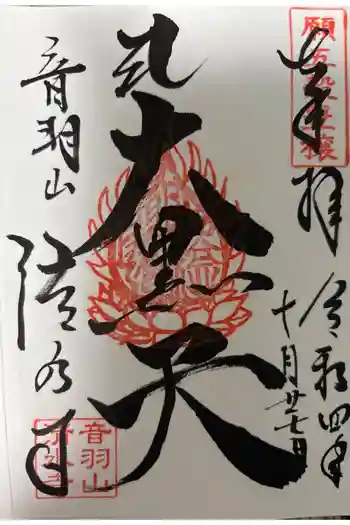 奉拝
令和四年
十月廿七日
大黒天
音羽山
清水寺
音羽山
清水寺